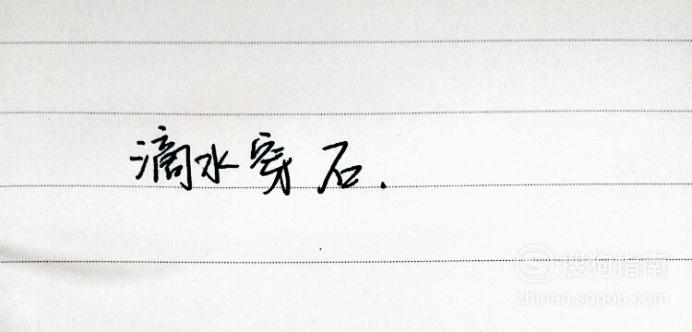 滴水穿石.
搜狗指南
zhinan.sogou.com